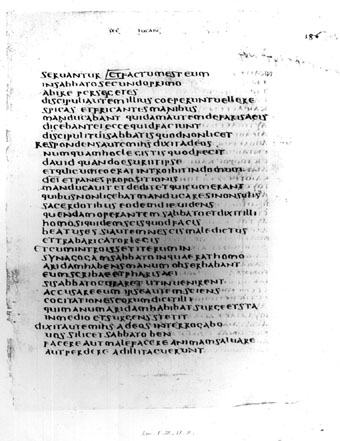 SEC LUCAN
SERUANTUR ETFACTUMESTEUM
INSABBATOSECUNDOPRIMO
ABIRE PERSEGETES
DISCIPULIAUTEMILLIUSCOEPERUNTUELLERE
SPICAS ETFRICANTESMANIBUS
MANDUCABANT QUIDAMAUTEMDEFARISAEIS
DICEBANTEIECCEQUIDFACIUNT
DISCIPULITUISABBATISQUODNONLICET
RESPONDENSAUTEMIHSDIXITADEOS
NUMQUAMHOCLEGISTISQUODFECIT
DAUID QUANDOESURIITIPSE
ETQUICUMEOERATINTROIBITINDOMUM
DEIETPANESPROPOSITIONIS
MANDUCAUITETDEDITETQUICUMERANT
QUIBUSNONLICEBATMANDUCARESINONSOLIS
SACERDOTIBUS EODEMDIEUIDENS
QUENDAMOPERANTEMSABBATOETDIXITILLI
HOMOSIQUIDEMSCISQUODFACIS
BEATUSES SIAUTEMNESCISMALEDICTUS
ETTRABARICATORLEGIS
ETCUMINTROISSETITERUMIN
SYNAGOGAMSABBATOINQUAERATHOMO
ARIDAMHABENSMANUMOBSERBABANT
EUMSCRIBAEETPHARISAEI
SISABBATOCURARETUTINUENIRENT
ACCUSAREEUM IPSEAUTEMSCIENS
COGITATIONESEORUMDICITILLI
QUIMANUMARIDAMHABEBATSURGEETSTA
INMEDIOETSURGENSSTETIT
DIXITAUTEMIHSADEOSINTERROGABO
UOS SILICETSABBATOBEN
FACEREAUTMALEFACEREANIMAMSALUARE
AUTPERDERE ADILLITACUERUNT